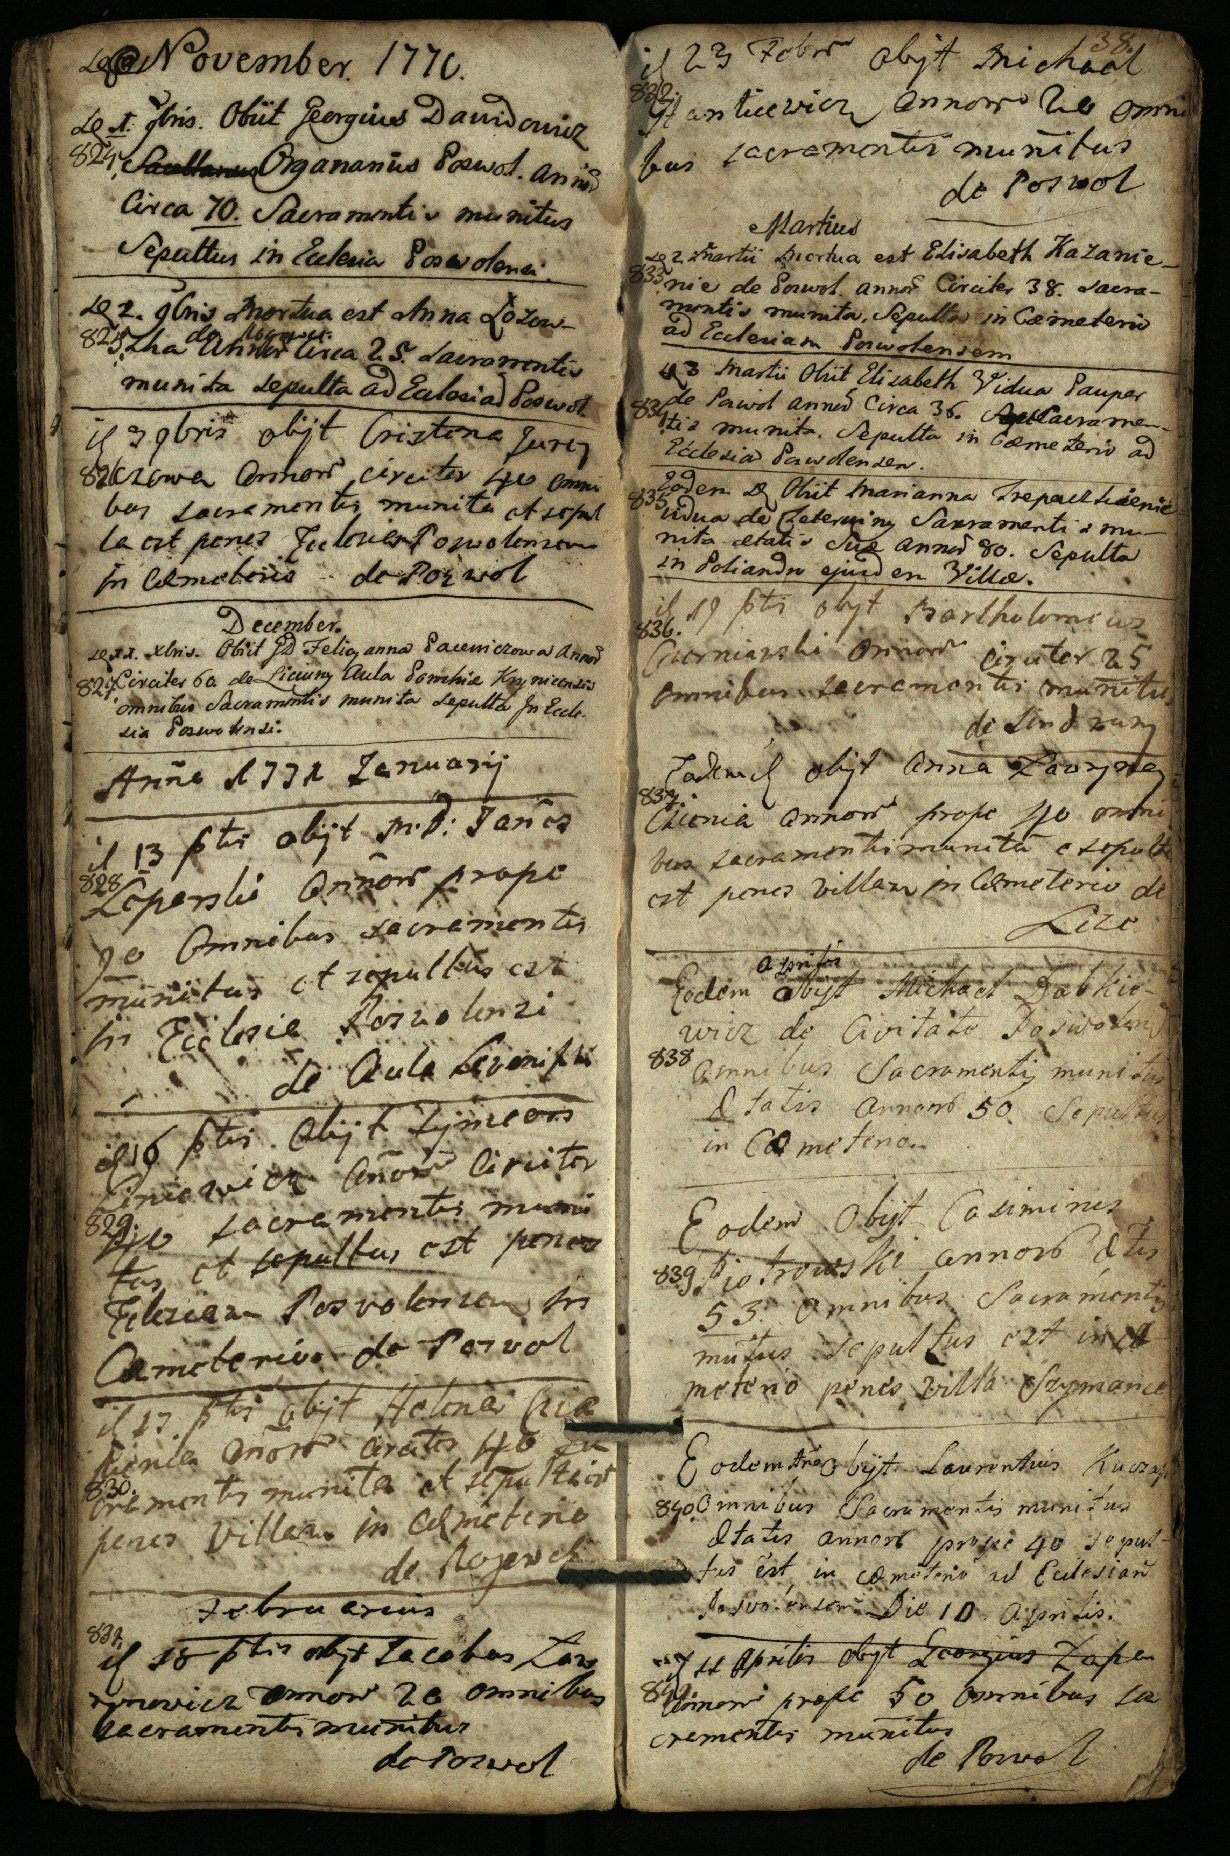 November. 1770.
De 1. 9bris. Obiit Georgius Dawidowicz
824. Organarius Poswol. annor
Circa 70. Sacramentis munitus
Sepultus in Eclesia Poswolensi.
De 2. 9bris Mortua est Anna Łozow-
825. ska Annor Circa 25. Sacramentis
munita sepulta ad Eclesiad Poswol.
il 3 9bris obijt Cristena Jurcz
826 czowa annor circiter 40 omni
bus sacramentis munita et sepul
ta est penes Eclesiam Poswolensem
in Cæmeterio de Poswol
December.
Xbris. Obiit GD Felicyanna Pacewiczowa Annor
827 Circiter 60 de Liciuny Aula
omnibus Sacramentis munita sepulta In Eccle-
sia Poswolensi.
Anno 1771 Januarij
il 13 ptis obijt M.D: Jan̄es
828 Leparski Annor prope
90 Omnibus sacramentis
munitus et sepultus est
in Eclesia Poswolensi
de Aula
il 16 ptis Obijt Symeon
Annor Circiter
829. 40 sacramentis muni
tus et sepultus est penes
Eclesiam Poswolensem in
Cæmeterio de Poswol
il 17. ptis obijt Helena
annor circiter 40 sa
830. cramentis munita et sepulta est
penes Villam in Cæmeterio
de
Februarius
831.
il 18 ptis obijt Jacobus Law
rynowicz annor 20 omnibus
sacramentis munitus
de Poswol
38.
il 23 Febru obijt Michael
832.
annor 20 omni
bus sacramentis munitus
de Poswol
Martius
De 2. Martii Mortua est Elisabeth Kazanie-
833. nie de Poswol. annor Circiter 38. Sacra-
mentis munita. Sepulta in Cœmeterio
ad Eclesiam Poswolensem
3 Martii Obiit Elisabeth Vidua Pauper
834 de Poswol annor Circa 36. Sacrame-
tis munita. Sepulta in Cœmeterio ad
Eclesia Poswolensem.
835 Eadem Obiit Marianna
vidua de Sacramentis mu-
nita ætatis suæ annor 80. Sepulta
in Poliandro ejusdem Villæ.
il 19 ptis obijt Bartholomeus
836. Czerniawski Annor Circiter 25
omnibus sacramentis munitus
de
Eadem obijt Anna Lawryno
837. annor prope 40 omni
bus sacramentis munita e sepulta
est penes villam in Cæmeterio de
Aprilis
Eodem obijt Michael Dabkie-
wicz de Civitate Poswolensi
838 Omnibus Sacramentis munitus
Ætatis annorō 50. Sepultus
in Cœmeterio.
Eodem Obijt Casimirus
839. Piotrowski annorō Ætis
53. Omnibus Sacramentis
munitus sepultus est in cæ
meterio penes villa Szymance
Eodem Obijt Laurentius
840. Omnibus Sacramentis munitus
Ætatis annorō prope 40 sepul-
tus est in cæmeterio ad Eclesiam
Poswolensem Die 10 Aprilis.
il 11 Aprilis obijt Georgius Zapen
841. Annor prope 50 omnibus sa
cramentis munitus
de Poswol